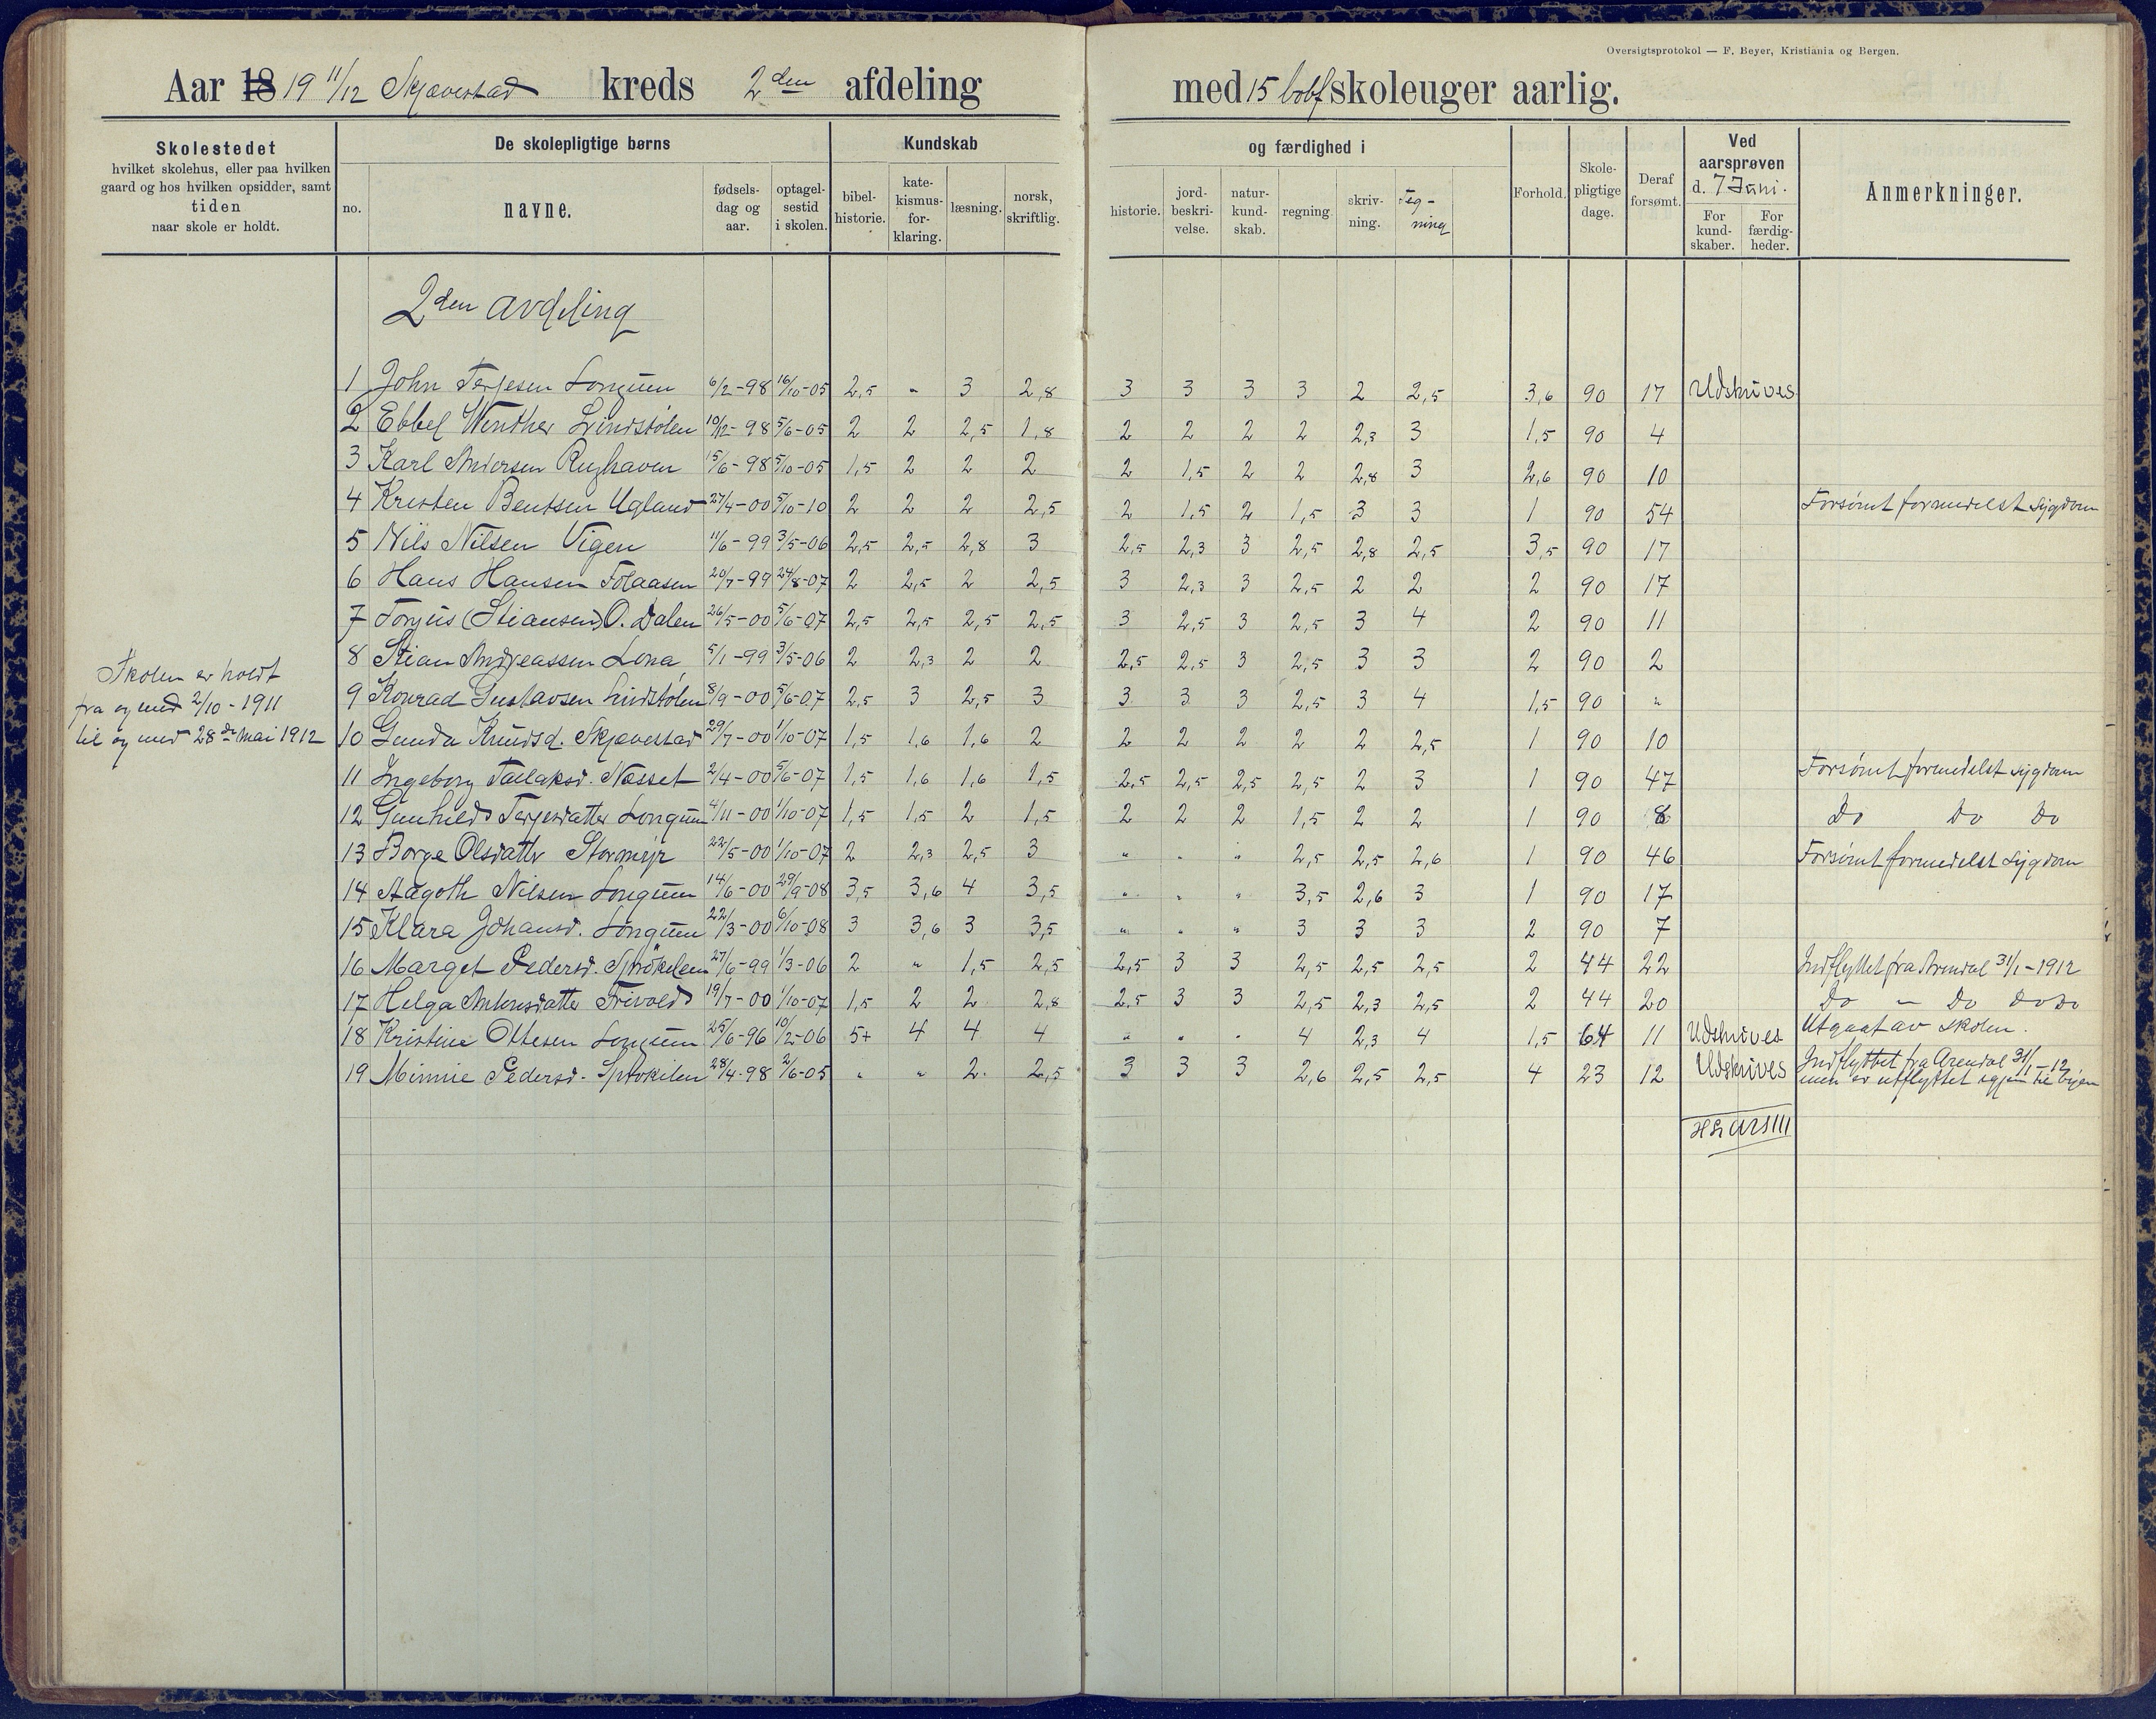 Oversigtsprotokol — F. Beyer, Kristiania og Bergen.
Aar 18 19 11/12 Skjævestad kreds 2den afdeling med 15 skoleuger aarlig.
Skolestedet
hvilket skolehus, eller paa hvilken
gaard og hos hvilken opsidder, samt
tiden
naar skole er holdt.
De skolepligtige børns
no. navne. fødselsdag og aar. optagelsestid i skolen.
Kundskab og færdighed i
bibelhistorie. katekismusforklaring. læsning. norsk, skriftlig. historie. jordbeskrivelse. naturkundskab. regning. skrivning. Tegning
Forhold. Skolepligtige dage. Deraf forsømt.
Ved aarsprøven d. 7 Juni.
For kundskaber. For færdigheder.
Anmerkninger.
2den avdeling
1 John Terjesen Longum 6/2-98 16/10-05 2,5 " 3 2,8 3 3 3 3 2 2,5 3,6 90 17 Udskrives
2 Ebbel Winther Lindstølen 10/12-98 5/6-05 2 2 2,5 1,8 2 2 2 2 2,3 3 1,5 90 4
3 Karl Andersen 15/6-98 5/10-05 1,5 2 2 2 2 1,5 2 2 2,8 3 2,6 90 10
4 Kristen Bentsen Ugland 27/4-00 5/10-10 2 2 2 2,5 2 1,5 2 1,5 3 3 1 90 54 Forsømt formedelst sygdom
5 Nils Nilsen Vigen 11/6-99 3/5-06 2,5 2,5 2,8 3 2,5 2,3 3 2,5 2,8 2,5 3,5 90 17
6 Hans Hansen Folaasen 20/7-99 24/8-07 2 2,5 2 2,5 3 2,3 3 2,5 2 2 2 90 17
7 Torjus (Stiansen) O. Dalen 26/5-00 5/6-07 2,5 2,5 2,5 2,5 3 2,5 3 2,5 3 4 2 90 11
8 Stian Andreassen Lona 5/1-99 3/5-06 2 2,3 2 2 2,5 2,5 3 2,5 3 3 2 90 2
Skolen er holdt
fra og med 2/10-1911
til og med 28de Mai 1912
9 Konrad Gustavsen Lindstølen 8/9-00 5/6-07 2,5 3 2,5 3 3 3 3 2,5 3 4 1,5 90 "
10 Gunda Knudsd. Skjævestad 29/7-00 1/10-07 1,5 1,6 1,6 2 2 2 2 2 2 2,5 1 90 10
11 Ingeborg Tallaksd. Næsset 2/4-00 5/6-07 1,5 1,6 1,6 1,5 2,5 2,5 2,5 2,5 2 3 1 90 47 Forsømt formedelst sygdom
12 Gunhild Terjesdatter Longum 4/11-00 1/10-07 1,5 1,5 2 1,5 2 2 2 1,5 2 2 1 90 8 Do Do Do
13 Borge Olsdatter Stormyr 22/5-00 1/10-07 2 2,3 2,5 3 " " " 2,5 2,5 2,6 1 90 46 Forsømt formedelst sygdom
14 Aagoth Nilsen Longum 14/6-00 29/9-08 3,5 3,6 4 3,5 " " " 3,5 2,6 3 1 90 17
15 Klara Johansd. Longum 22/3-00 6/10-08 3 3,6 3 3,5 " " " 3 3 3 2 90 7
16 Marget Pedersd. Sprøkilen 27/6-99 1/3-06 2 " 1,5 2,5 2,5 3 3 2,5 2,5 2,5 2 44 22 Indflyttet fra Arendal 31/1-1912
17 Helga Antonsdatter Frivold 19/7-00 1/10-07 1,5 2 2 2,8 2,5 3 3 2,5 2,3 2,5 2 44 20 Do " Do Do Do
18 Kristine Ottesen Longum 25/6-96 10/2-06 5+ 4 4 4 " " " 4 2,3 4 1,5 64 11 Udskrives Utgaat av skolen.
19 Minnie Pedersd. Sprøkilen 28/4-98 2/6-05 " " 2 2,5 3 3 3 2,6 2,5 2,5 4 23 12 Udskrives Indflyttet fra Arendal 31/1-12
men er utflyttet igjen til byen